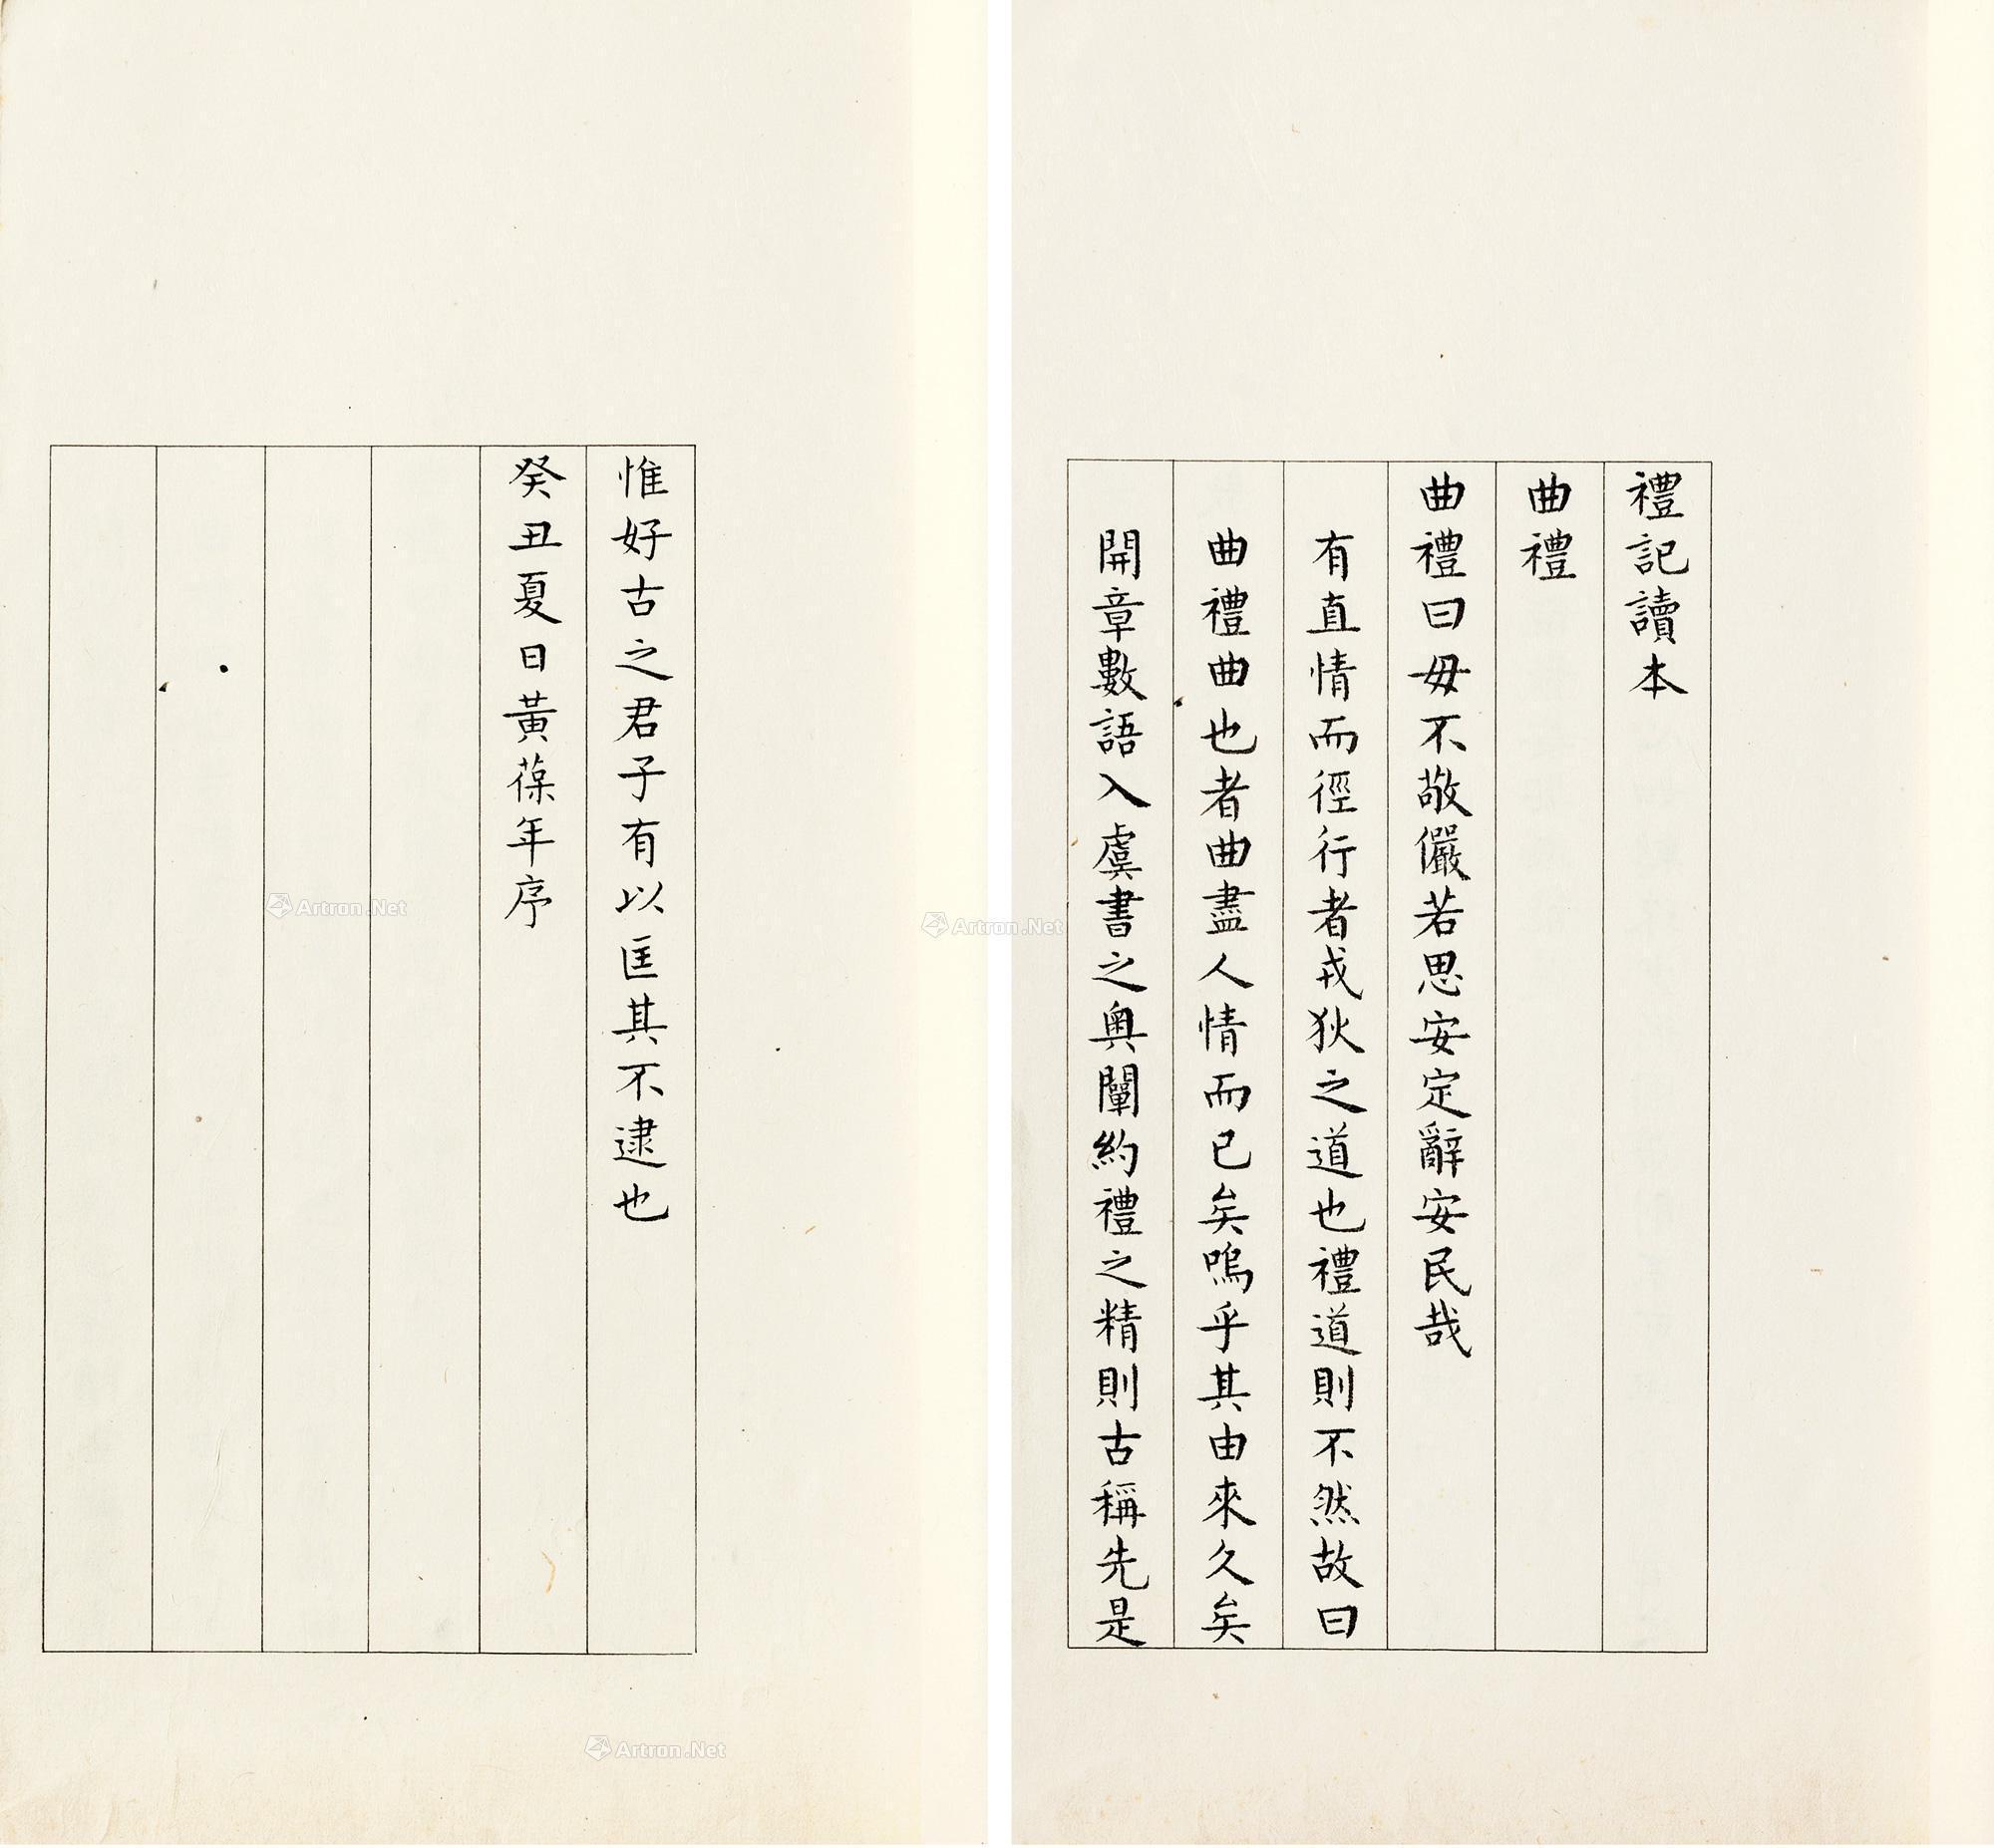 禮記讀本
曲禮
曲禮曰毋不敬儼若思安定辭安民哉
有直情而徑行者戎狄之道也禮道則不然故曰
曲禮曲也者曲盡人情而已矣嗚乎其由來久矣
開章數語入虞書之奧闡約禮之精則古稱先是
惟好古之君子有以匡其不逮也
癸丑夏日黃葆年序
Artron.Net
Artron.Net
Artron.Net